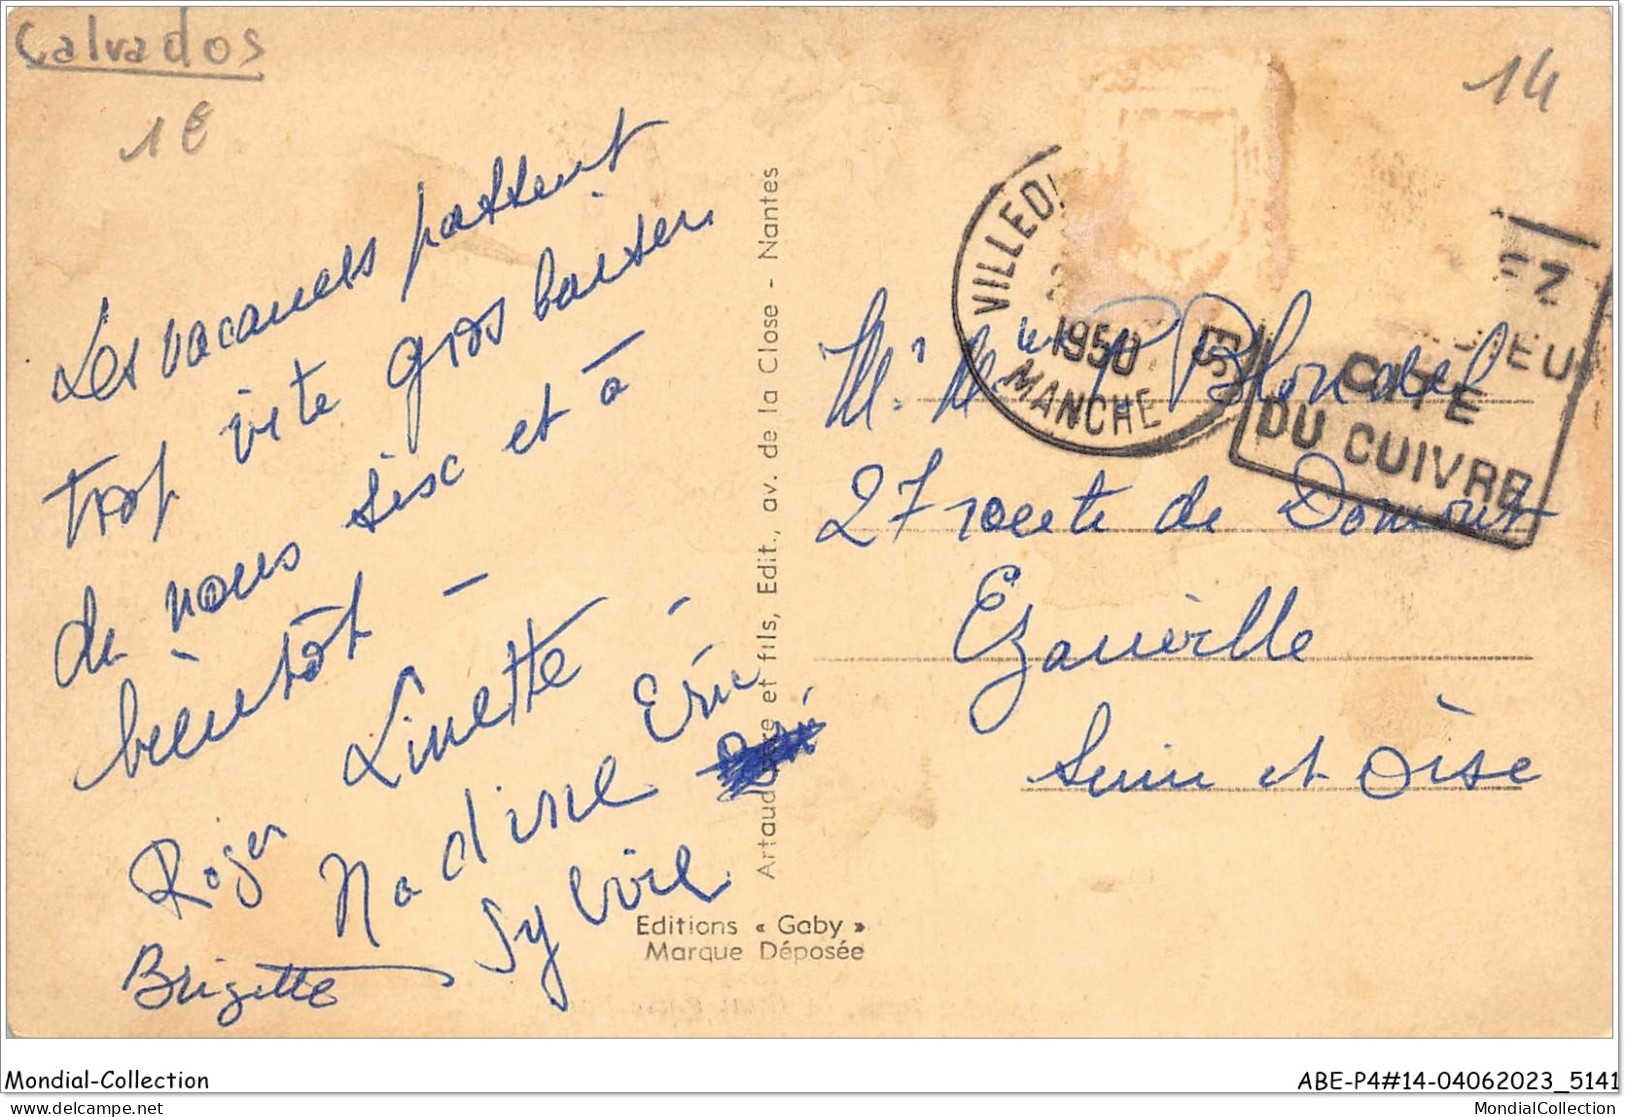 Calvados
1€
14
Les vacances passent
trop vite gros baisers
de nous sisc et à
bientôt -
Linette -
Roger Nadine Eric
Brigitte Sylvie
Artaud père et fils, Edit., av. de la Close - Nantes
Editions « Gaby »
Marque Déposée
VILLEDI
1950
MANCHE
EZ
DIEU
CITE
DU CUIVRE
Mr Mme Blondel
27 route de Domont
Ezanville
Seine et Oise
Mondial-Collection
ABE-P4#14-04062023_5141
delcampe.net
MondialCollection